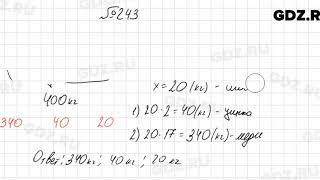 №243
GDZ.RU
400кг
340 40 20
x = 20 (кг) -
1) 20·2 = 40 (кг) - цинка
2) 20·17 = 340 (кг) - меди
Ответ: 340 кг; 40 кг; 20 кг